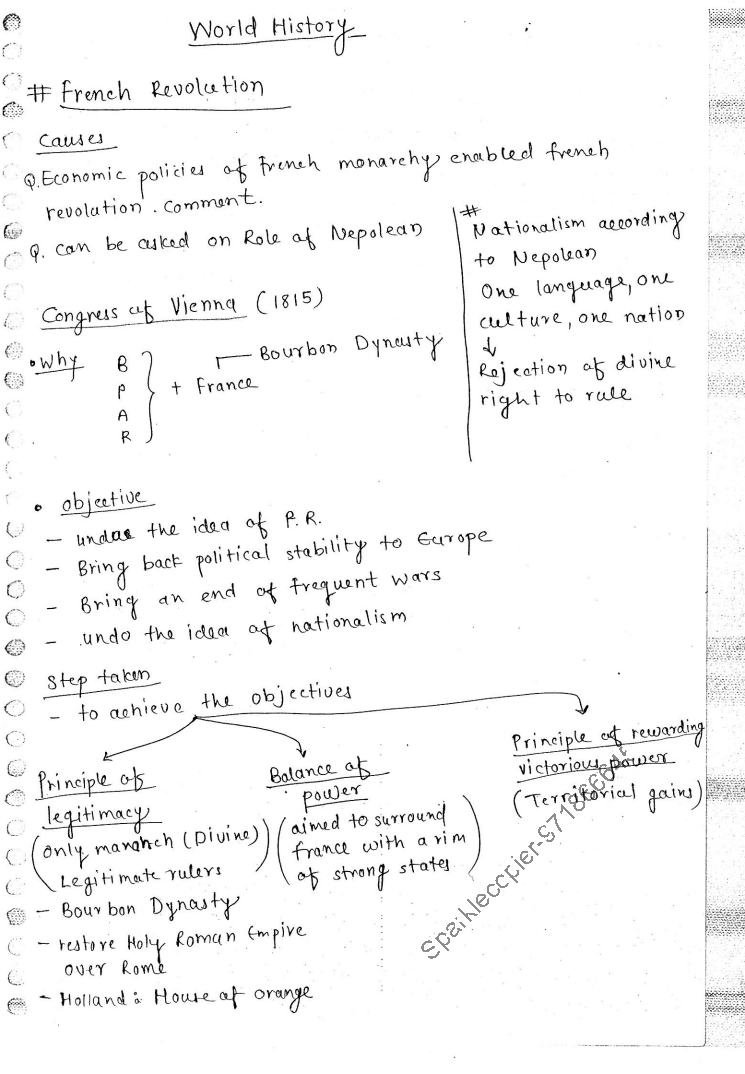 World History
# French Revolution
Causes
Q. Economic policies of French monarchy enabled french
revolution. Comment.
Q. can be asked on Role of Nepolean
#
Nationalism according
to Nepolean
One language, one
culture, one nation
↓
Rejection of divine
right to rule
Congress of Vienna (1815)
• Why
B
P
A
R
+ France
Bourbon Dynasty
• objective
- undae the idea of P.R.
- Bring back political stability to Europe
- Bring an end of frequent wars
- undo the idea of nationalism
Step taken
- to achieve the objectives
Principle of
legitimacy
(only manarch (Divine)
Legitimate rulers)
- Bourbon Dynasty
- restore Holy Roman Empire
over Rome
- Holland : House of orange
Balance of
power
(aimed to surround
france with a rim
of strong states)
Principle of rewarding
victorious power
(Territorial gains)